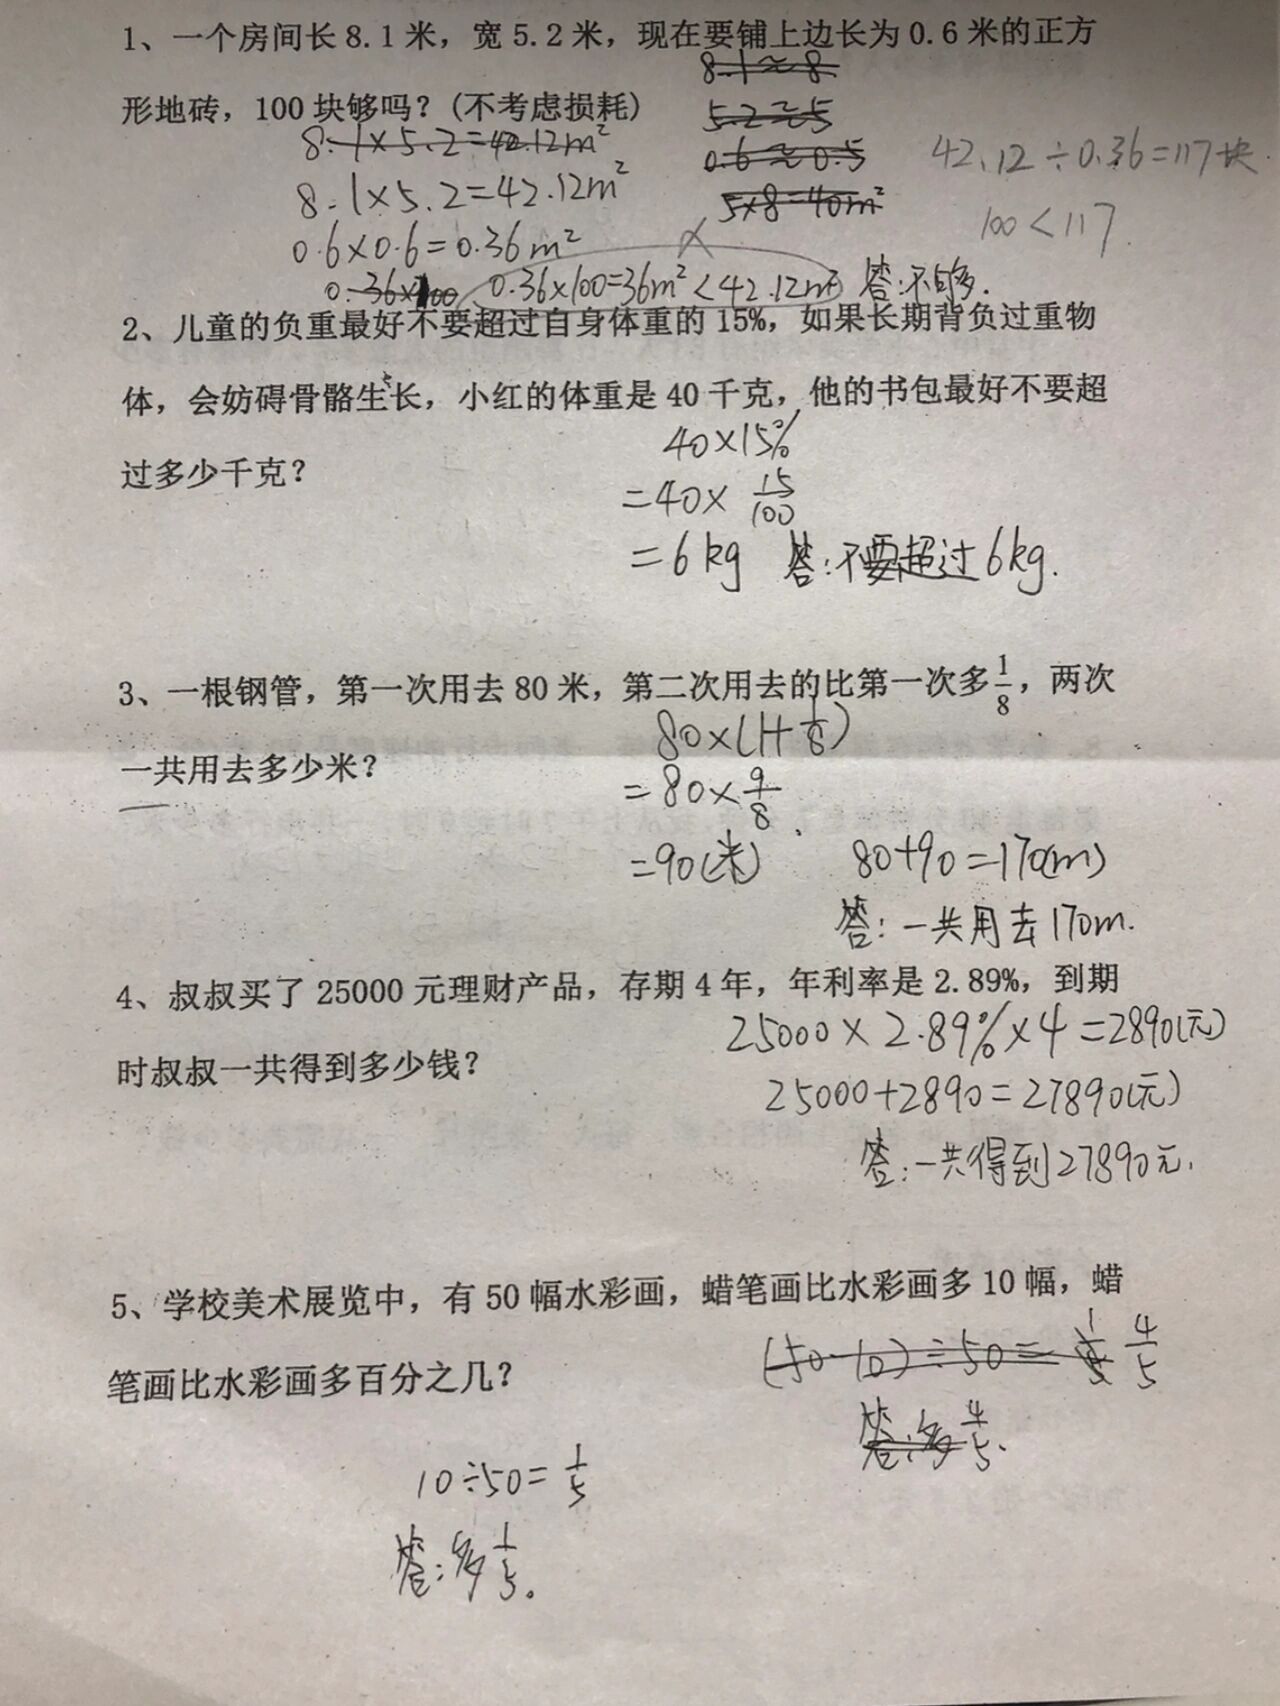 1、一个房间长8.1米，宽5.2米，现在要铺上边长为0.6米的正方
8.1≈8.
形地砖，100块够吗？(不考虑损耗)
5.2≈5
8.1×5.2=42.12m²
0.6≈0.5
42.12÷0.36=117块
8.1×5.2=42.12m²
5×8=40m²
100<117.
0.6×0.6=0.36m²
0.36×100 0.36×100=36m²<42.12m² 答:不够.
2、儿童的负重最好不要超过自身体重的15%，如果长期背负过重物
体，会妨碍骨骼生长，小红的体重是40千克，他的书包最好不要超
40×15%
过多少千克？
=40×15/100
=6kg 答:不要超过6kg.
3、一根钢管，第一次用去80米，第二次用去的比第一次多1/8，两次
80×(1+1/8)
一共用去多少米？
=80×9/8
=90(米) 80+90=170(m)
答:一共用去170m.
4、叔叔买了25000元理财产品，存期4年，年利率是2.89%，到期
25000×2.89%×4=2890(元)
时叔叔一共得到多少钱？
25000+2890=27890(元)
答:一共得到27890元.
5、学校美术展览中，有50幅水彩画，蜡笔画比水彩画多10幅，蜡
(50-10)÷50=1/5 4/5
笔画比水彩画多百分之几？
答:多4/5.
10÷50=1/5
答:多1/5.